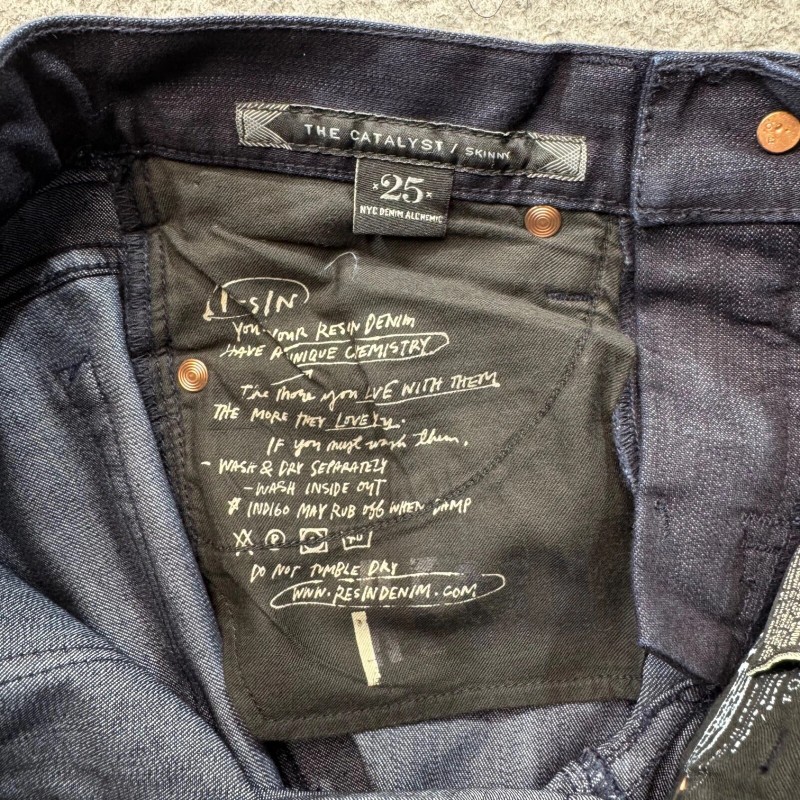 THE CATALYST / SKINNY
25
NYC DENIM ALCHEMIC
RESIN
YOU & YOUR RESIN DENIM
HAVE A UNIQUE CHEMISTRY.
The more you LIVE WITH THEM
THE MORE THEY LOVE You.
If you must wash them,
- WASH & DRY SEPARATELY
- WASH INSIDE OUT
* INDIGO MAY RUB OFF WHEN DAMP
DO NOT TUMBLE DRY
WWW.RESINDENIM.COM